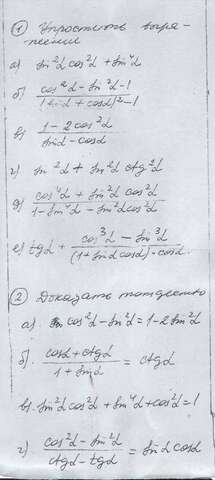 ① Упростить выра-
жения
а) sin²α cos²α + sin⁴α
б) (cos²α - sin²α - 1) / ((sinα + cosα)² - 1)
в) (1 - 2cos²α) / (sinα - cosα)
г) sin²α + sin²α ctg²α
д) (cos⁴α + sin²α cos²α) / (1 - sin⁴α - sin²α cos²α)
е) tgα + (cos³α - sin³α) / ((1 + sinα cosα) · cosα)
② Доказать тождество
а) cos²α - sin²α = 1 - 2sin²α
б) (cosα + ctgα) / (1 + sinα) = ctgα
в) sin²α cos²α + sin⁴α + cos²α = 1
г) (cos²α - sin²α) / (ctgα - tgα) = sinα cosα